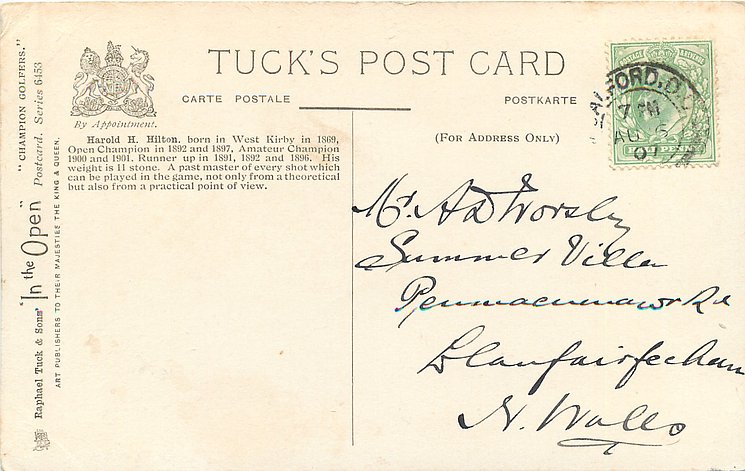 TUCK'S POST CARD
CARTE POSTALE
POSTKARTE
By Appointment.
(FOR ADDRESS ONLY)
Harold H. Hilton, born in West Kirby in 1869,
Open Champion in 1892 and 1897, Amateur Champion
1900 and 1901. Runner up in 1891, 1892 and 1896. His
weight is 11 stone. A past master of every shot which
can be played in the game, not only from a theoretical
but also from a practical point of view.
Raphael Tuck & Sons' "In the Open" Postcard. Series 6453 "CHAMPION GOLFERS."
ART PUBLISHERS TO THEIR MAJESTIES THE KING & QUEEN.
ALFORD.D.
7 PM
AU 6
07
Mr. A D Worsley
Summer Villa
Penmaenmawr Rd
Llanfairfechan
N. Wales